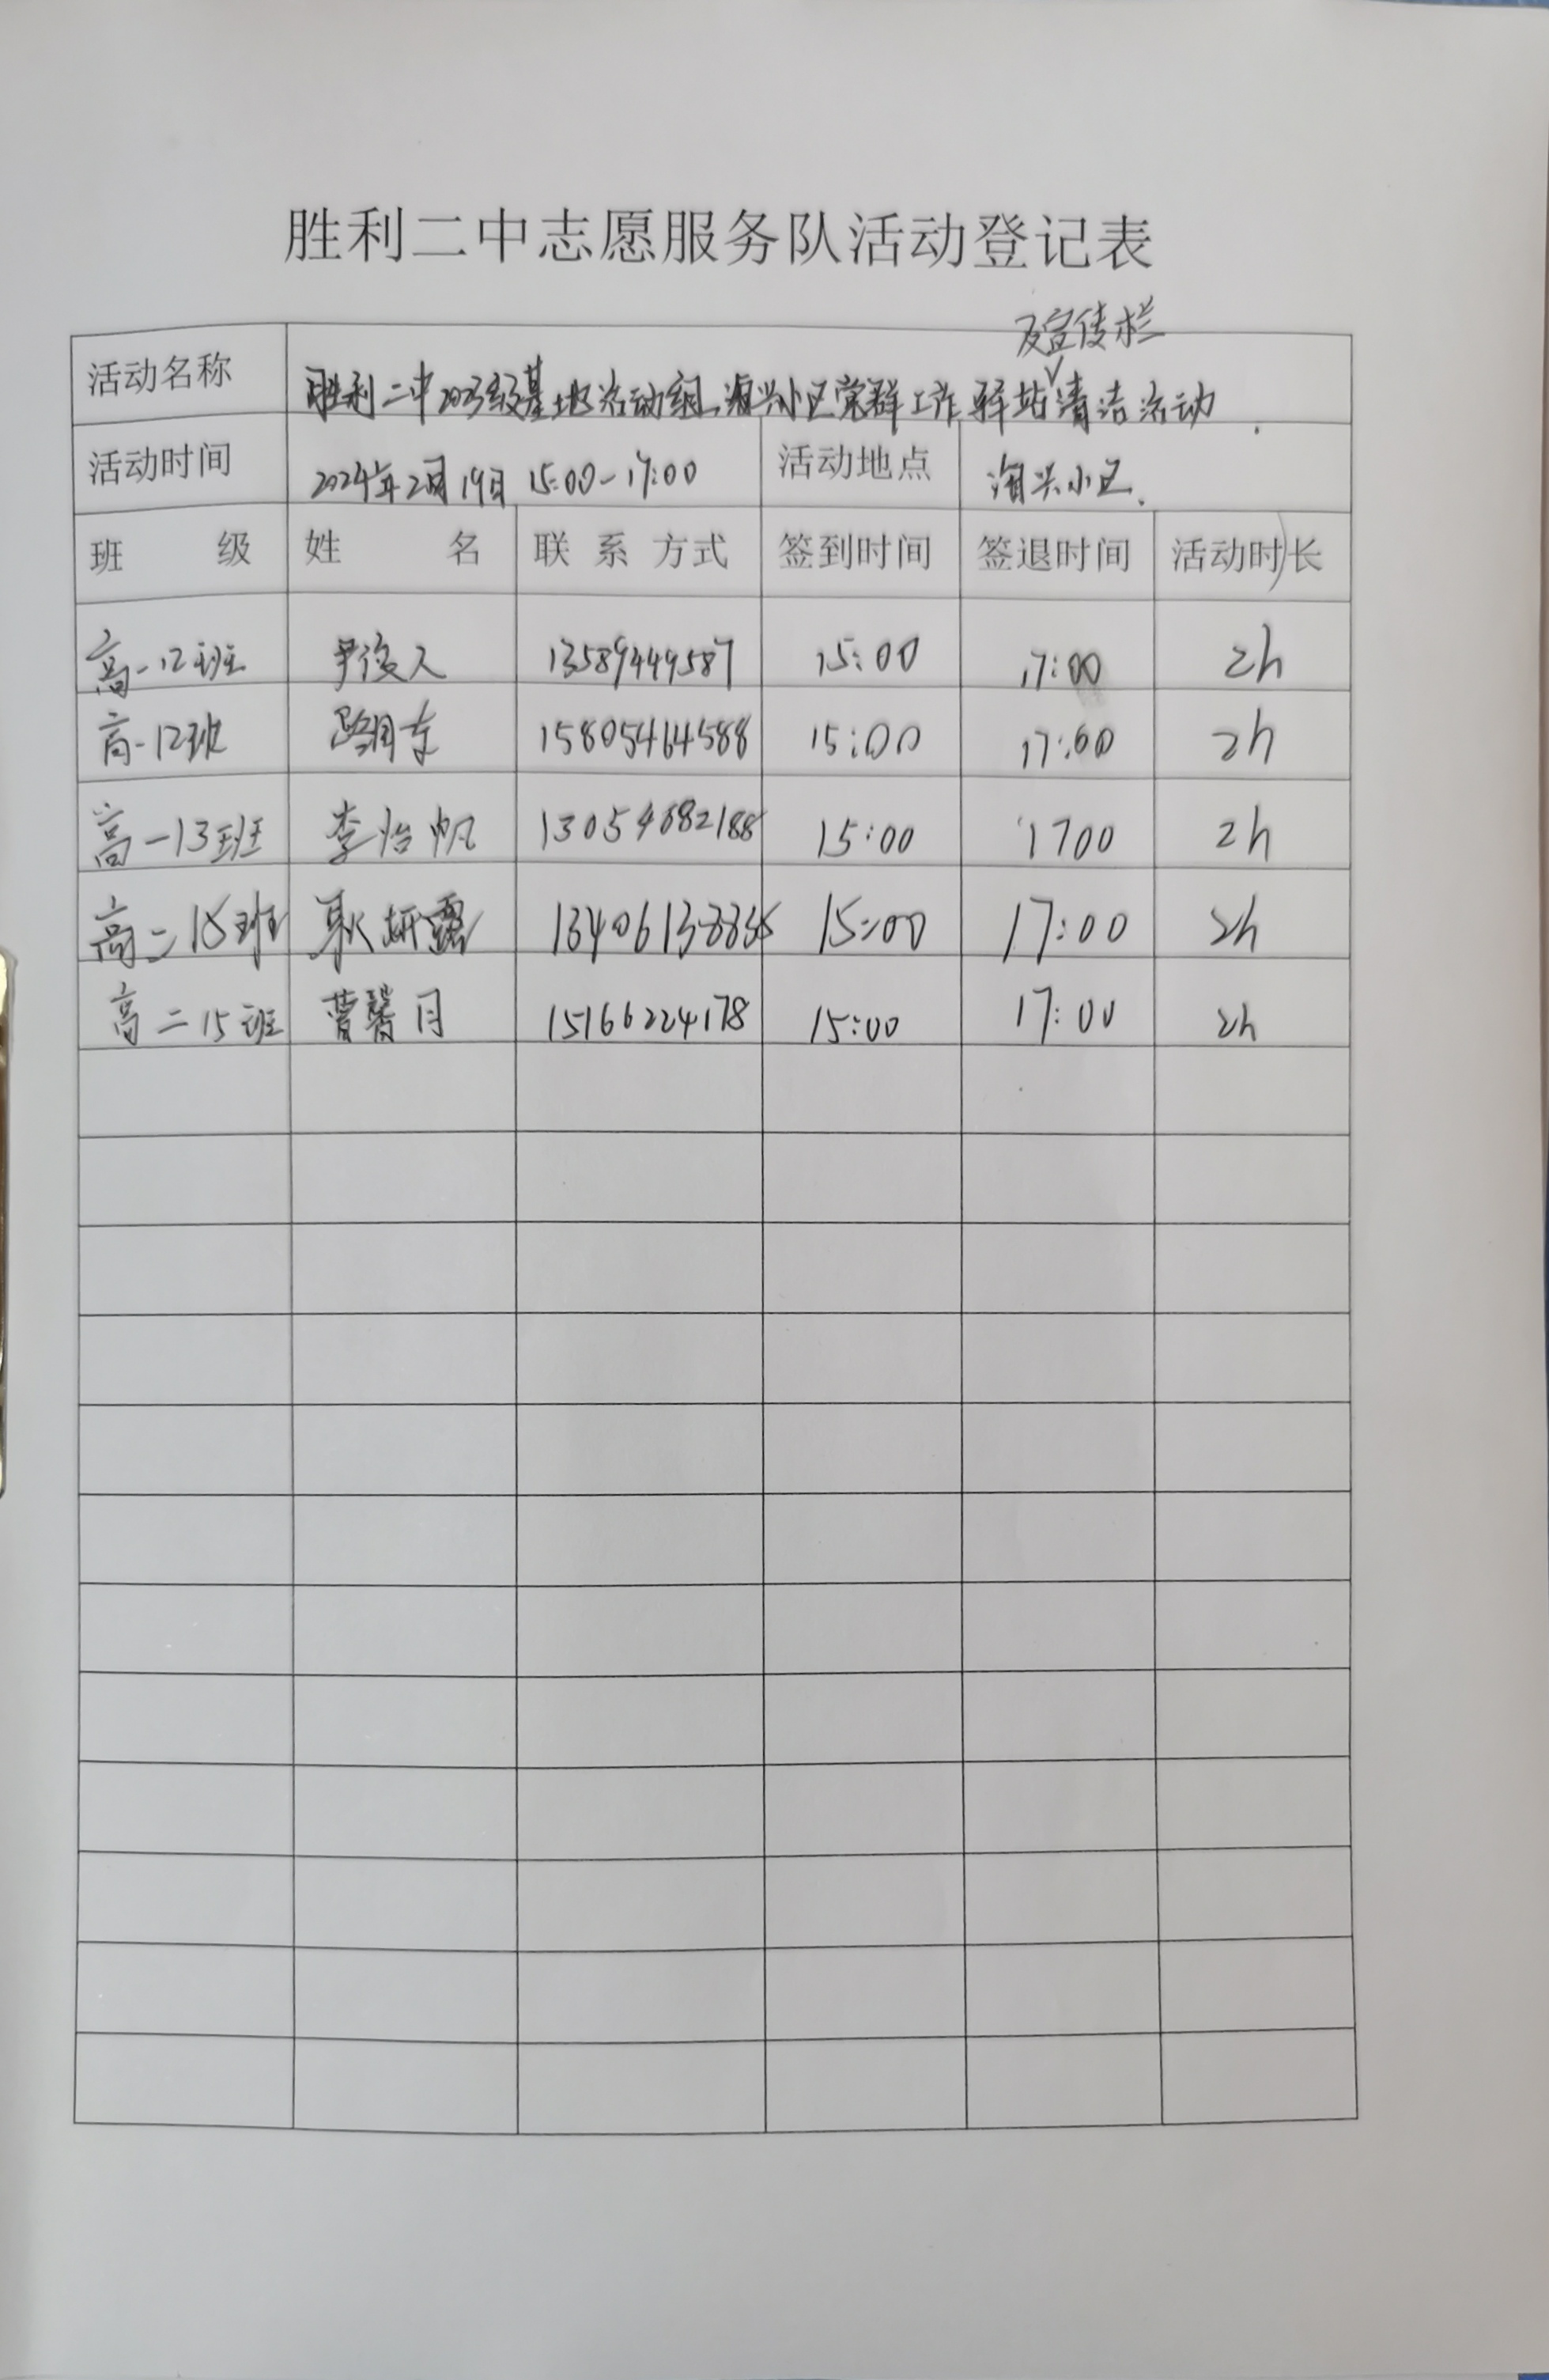 胜利二中志愿服务队活动登记表
及宣传栏
活动名称 胜利二中2023级基地活动组 海兴小区党群工作驿站清洁活动
活动时间 2024年2月19日 15:00-17:00 活动地点 海兴小区
班 级 姓 名 联系方式 签到时间 签退时间 活动时长
高一12班 尹俊人 13589449587 15:00 17:00 2h
高一12班 15805464588 15:00 17:00 2h
高一13班 李怡帆 13054682188 15:00 1700 2h
高二15班 耿妍露 15:00 17:00 2h
高二15班 曹馨月 15166224178 15:00 17:00 2h